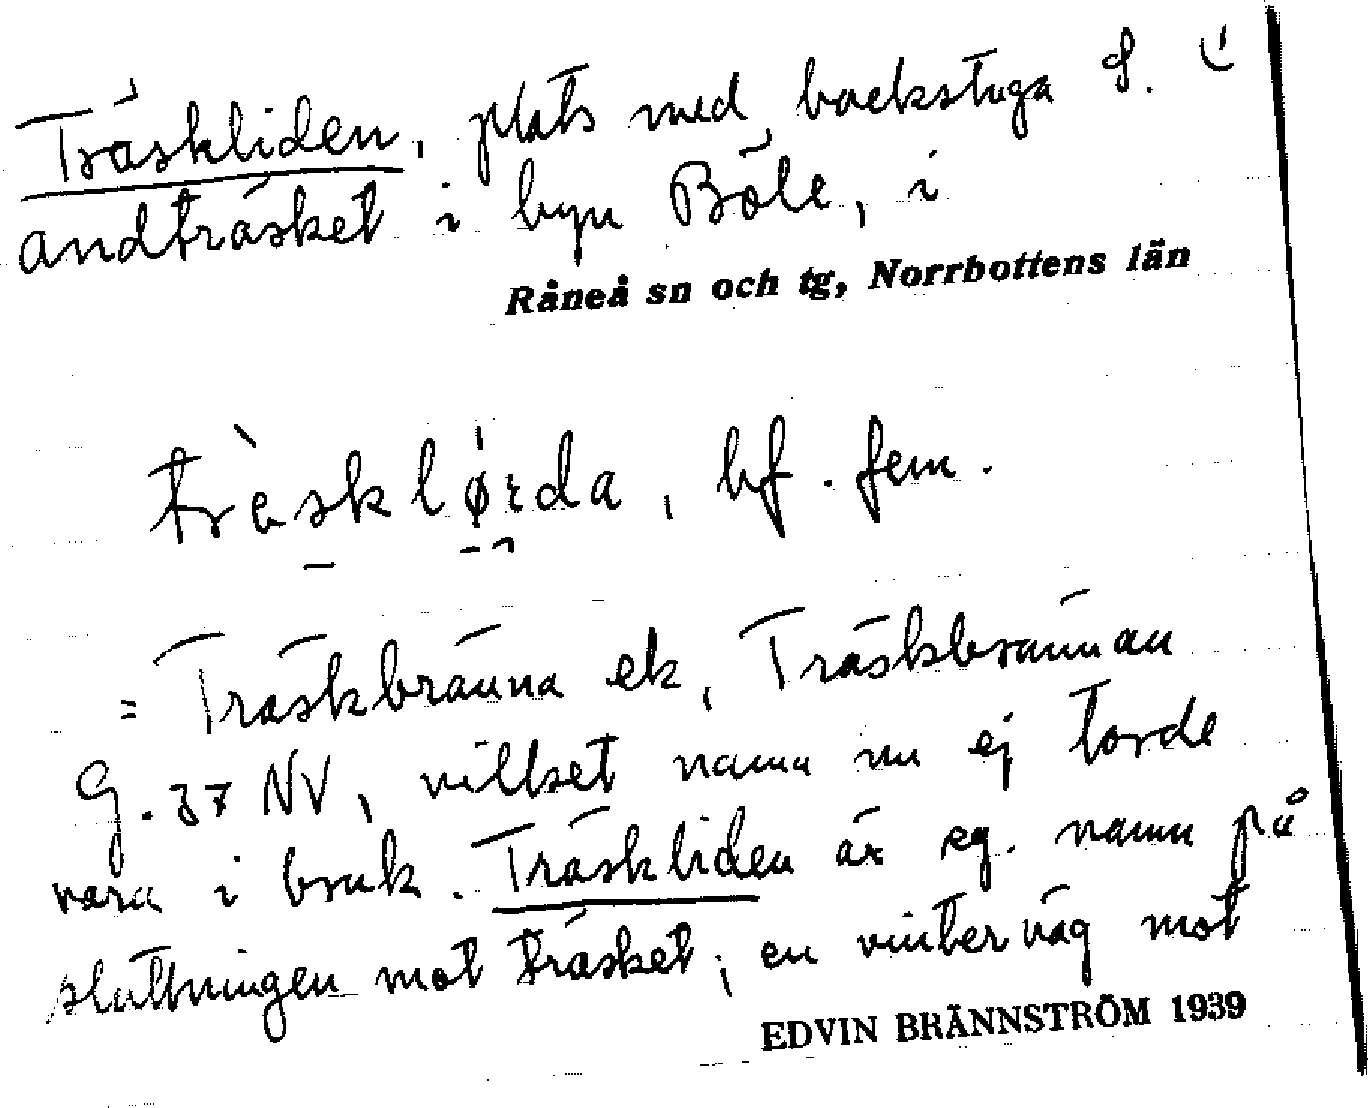 Träskliden, plats med backstuga S.
andträsket i byn Böle, i
Råneå sn och tg, Norrbottens län
bf. fem.
= Träskbränna ek, Träskbrännan
G. 37 NV, vilket namn nu ej torde
vara i bruk. Träskliden är eg. namn på
sluttningen mot träsket; en vinterväg mot
EDVIN BRÄNNSTRÖM 1939